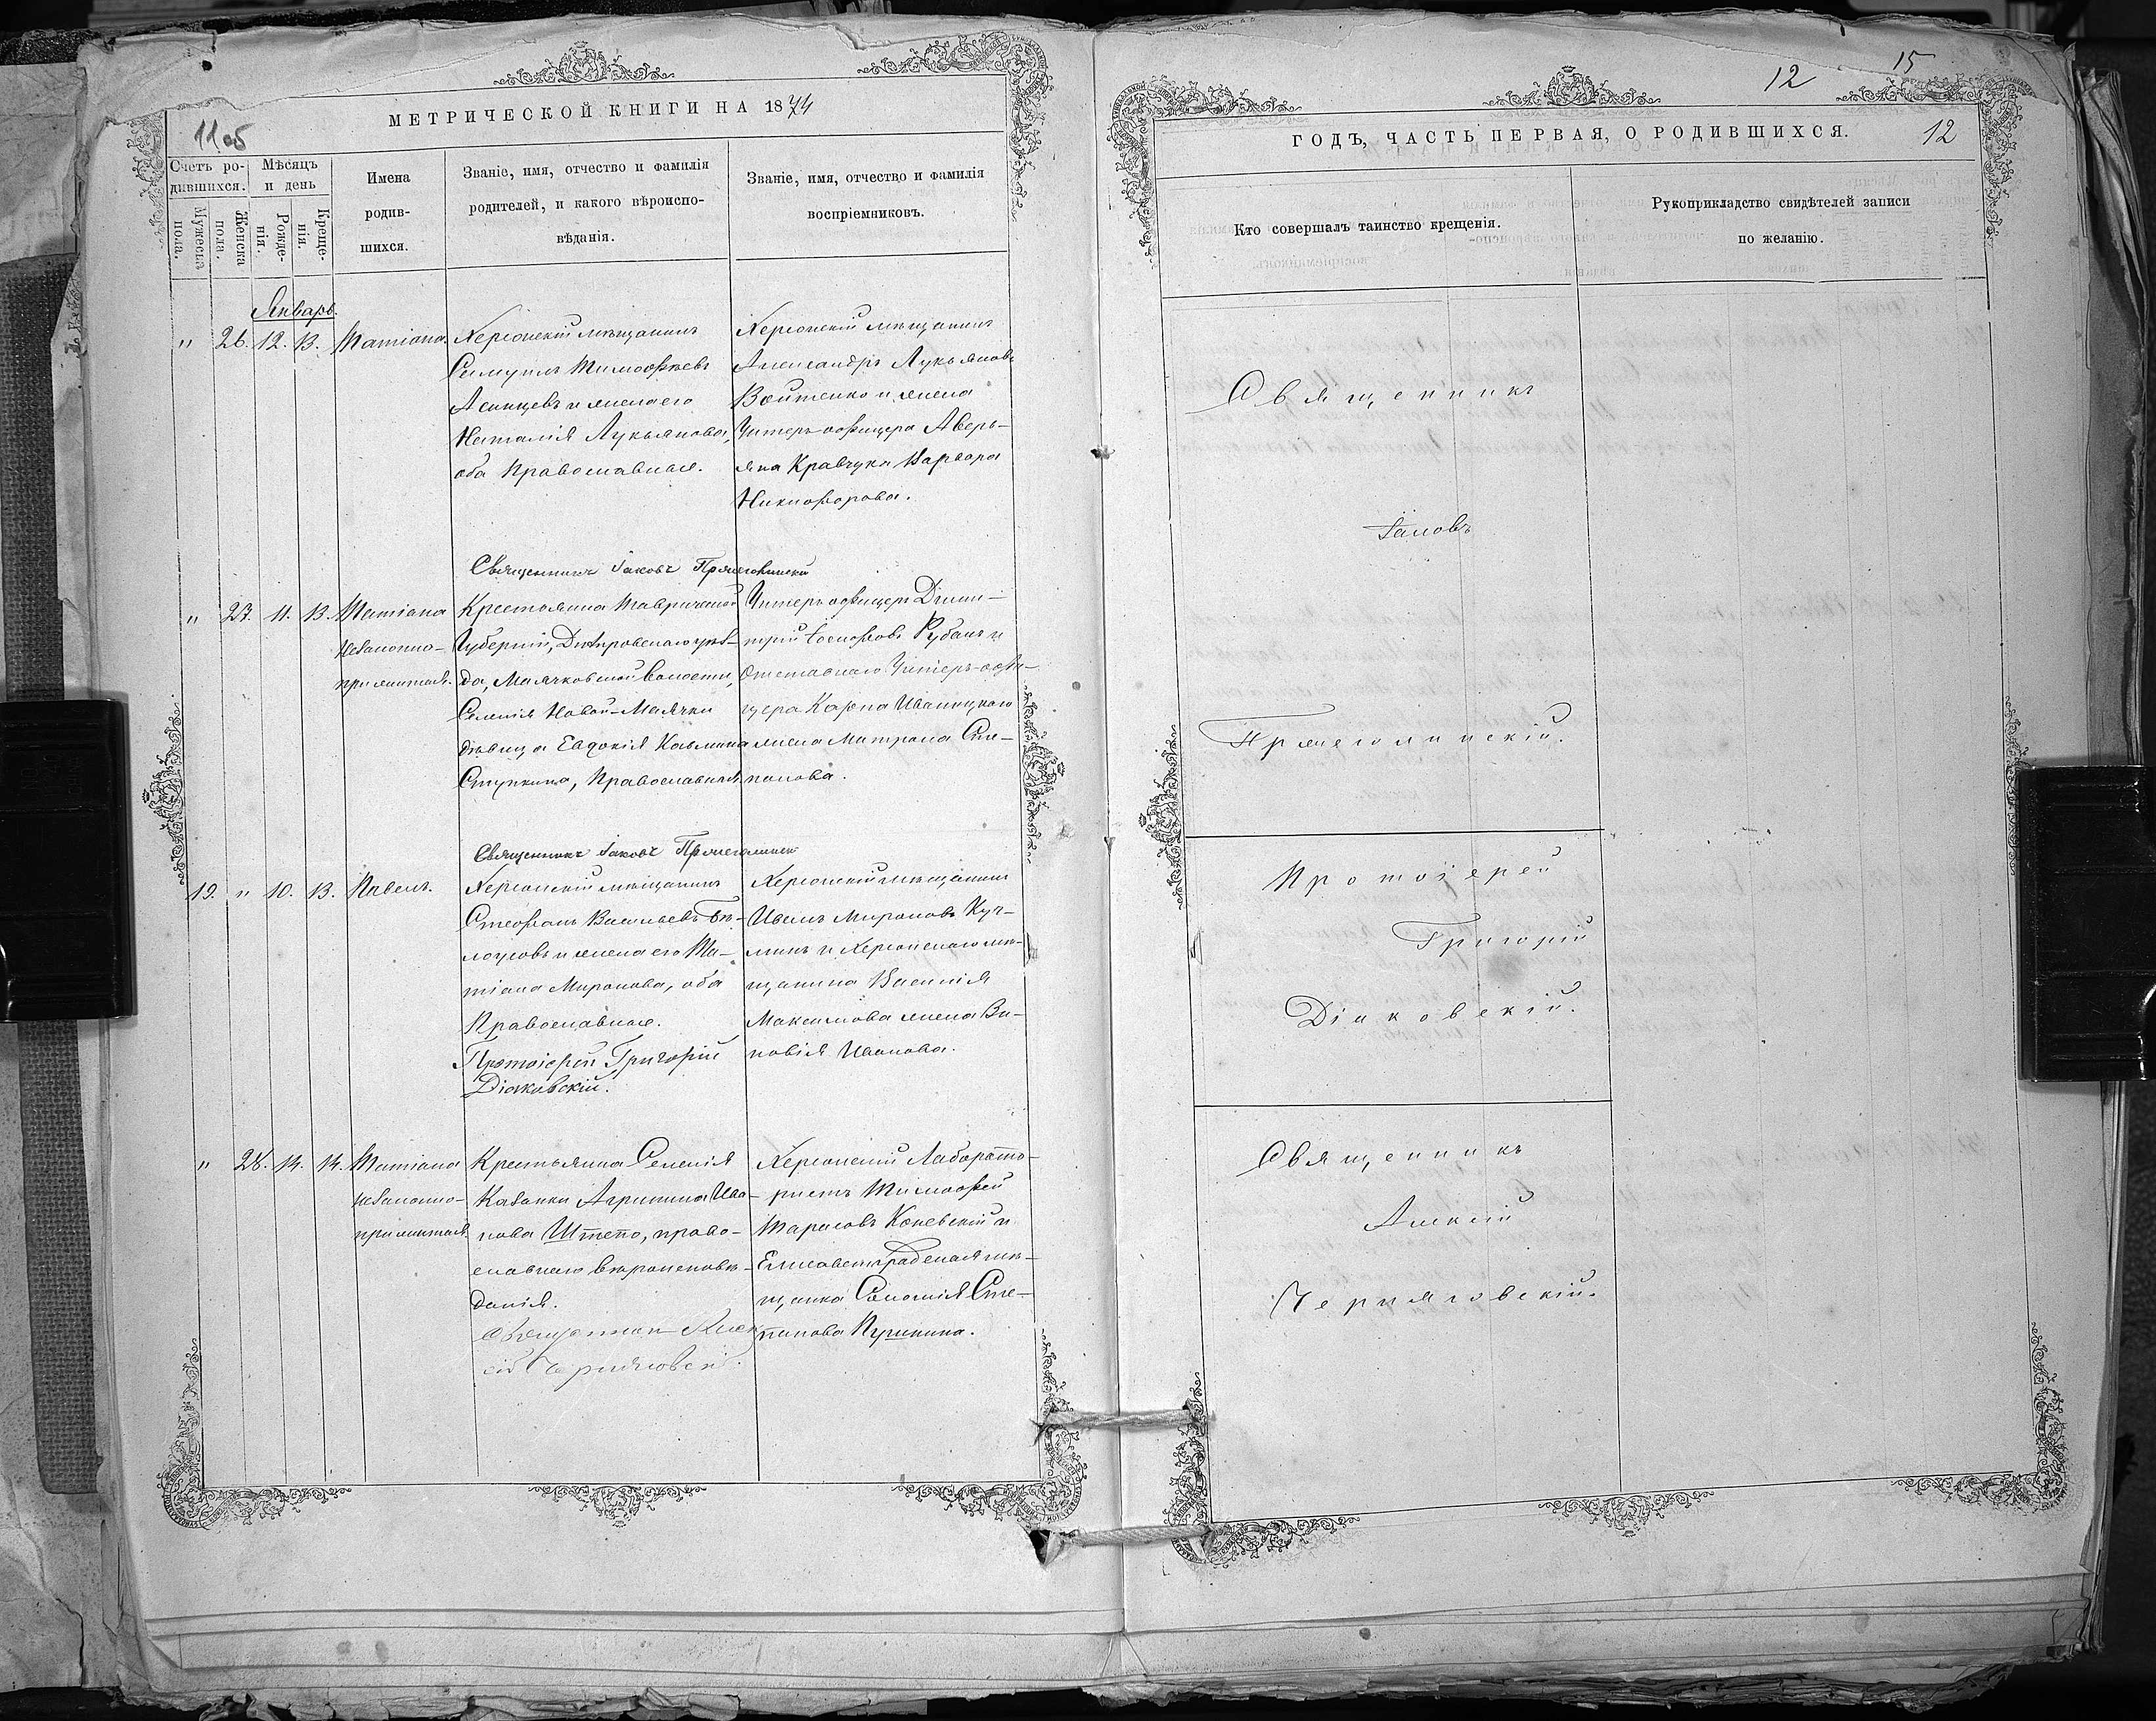 МЕТРИЧЕСКОЙ КНИГИ НА 1874
11об
Счетъ ро-
дившихся.
Мѣсяцъ
и день
Мужеска
пола.
Женска
пола.
Рожде-
нія.
Креще-
нія.
Имена
родив-
шихся.
Званіе, имя, отчество и фамилія
родителей, и какого вѣроиспо-
вѣданія.
Званіе, имя, отчество и фамилія
воспріемниковъ.
Январь.
" 26. 12. 13. Татіана.
Херсонскій мѣщанинъ
Самуилъ Тимоѳеевъ
и жена его
Наталія Лукьянова,
оба Православные.
Херсонскій мѣщанинъ
Александръ Лукьяновъ
Войтенко и жена
Унтеръ-офицера Аверь-
яна Кравчука Варвара
Никифорова.
Священникъ Іаковъ
" 27. 11. 13. Татіана
незаконно-
прижитая.
Крестьянка Таврической
Губерніи, Днѣпровскаго уѣз-
да, Маячковской волости,
Селенія Новой-Маячки
дѣвица Евдокія Козьмина
Ступкина, Православная.
Унтеръ офицеръ Дими-
трій Іосифовъ Рубанъ и
Отставнаго Унтеръ-офи-
цера Карпа Иваницкаго
жена Матрона Сте-
панова.
Священникъ Іаковъ
19. " 10. 13. Павелъ.
Херсонскій мѣщанинъ
Стефанъ Васильевъ Бѣ-
лоусовъ и жена его Та-
тіана Миронова, оба
Православные.
Протоіерей Григорій
Діаковскій.
Херсонскій мѣщанинъ
Иванъ Мироновъ Куч-
минъ и Херсонскаго мѣ-
щанина Василія
Максимова жена Зи-
новія Иванова.
" 28. 14. 14. Татіана
незаконно-
прижитая
Крестьянка Селенія
Казанки Агрипина Ива-
нова Штепо, право-
славнаго вѣроисповѣ-
данія.
Священникъ Алек
сій Черняговскій.
Херсонскій Лаборато-
ристъ Тимоѳей
Тарасовъ Коневскій и
Елисаветградская мѣ-
щанка Соломія Сте-
панова Пушкина.
12 15
ГОДЪ, ЧАСТЬ ПЕРВАЯ, О РОДИВШИХСЯ. 12
Кто совершалъ таинство крещенія.
Рукоприкладство свидѣтелей записи
по желанію.
Священникъ
Іаковъ
Протоіерей
Григорій
Діаковскій.
Священникъ
Алексій
Черняговскій.